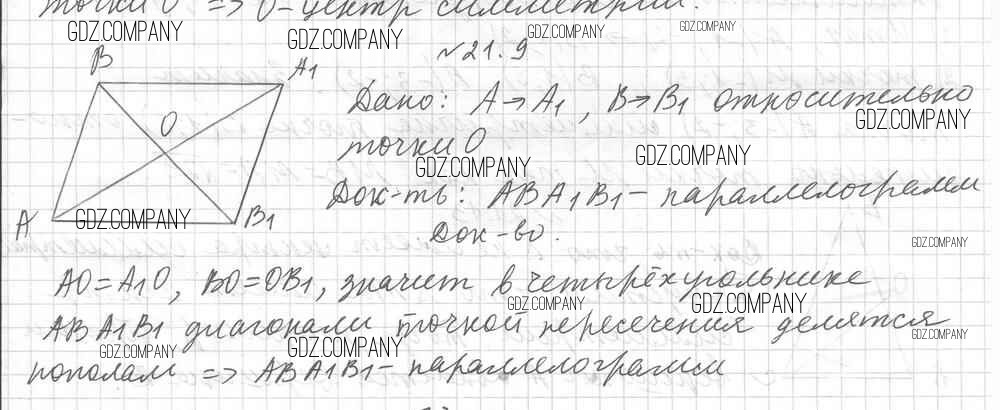 точки O => O - центр симметрии.
GDZ.COMPANY GDZ.COMPANY GDZ.COMPANY GDZ.COMPANY
№21.9
B A1
O
A B1
Дано: A→A1, B→B1 относительно
GDZ.COMPANY
точки O
GDZ.COMPANY GDZ.COMPANY
Док-ть: ABA1B1 - параллелограмм
GDZ.COMPANY
Док-во.
GDZ.COMPANY
AO=A1O, BO=OB1, значит в четырёхугольнике
GDZ.COMPANY GDZ.COMPANY
ABA1B1 диагонали точкой пересечения делятся
GDZ.COMPANY GDZ.COMPANY GDZ.COMPANY
пополам => ABA1B1 - параллелограмм